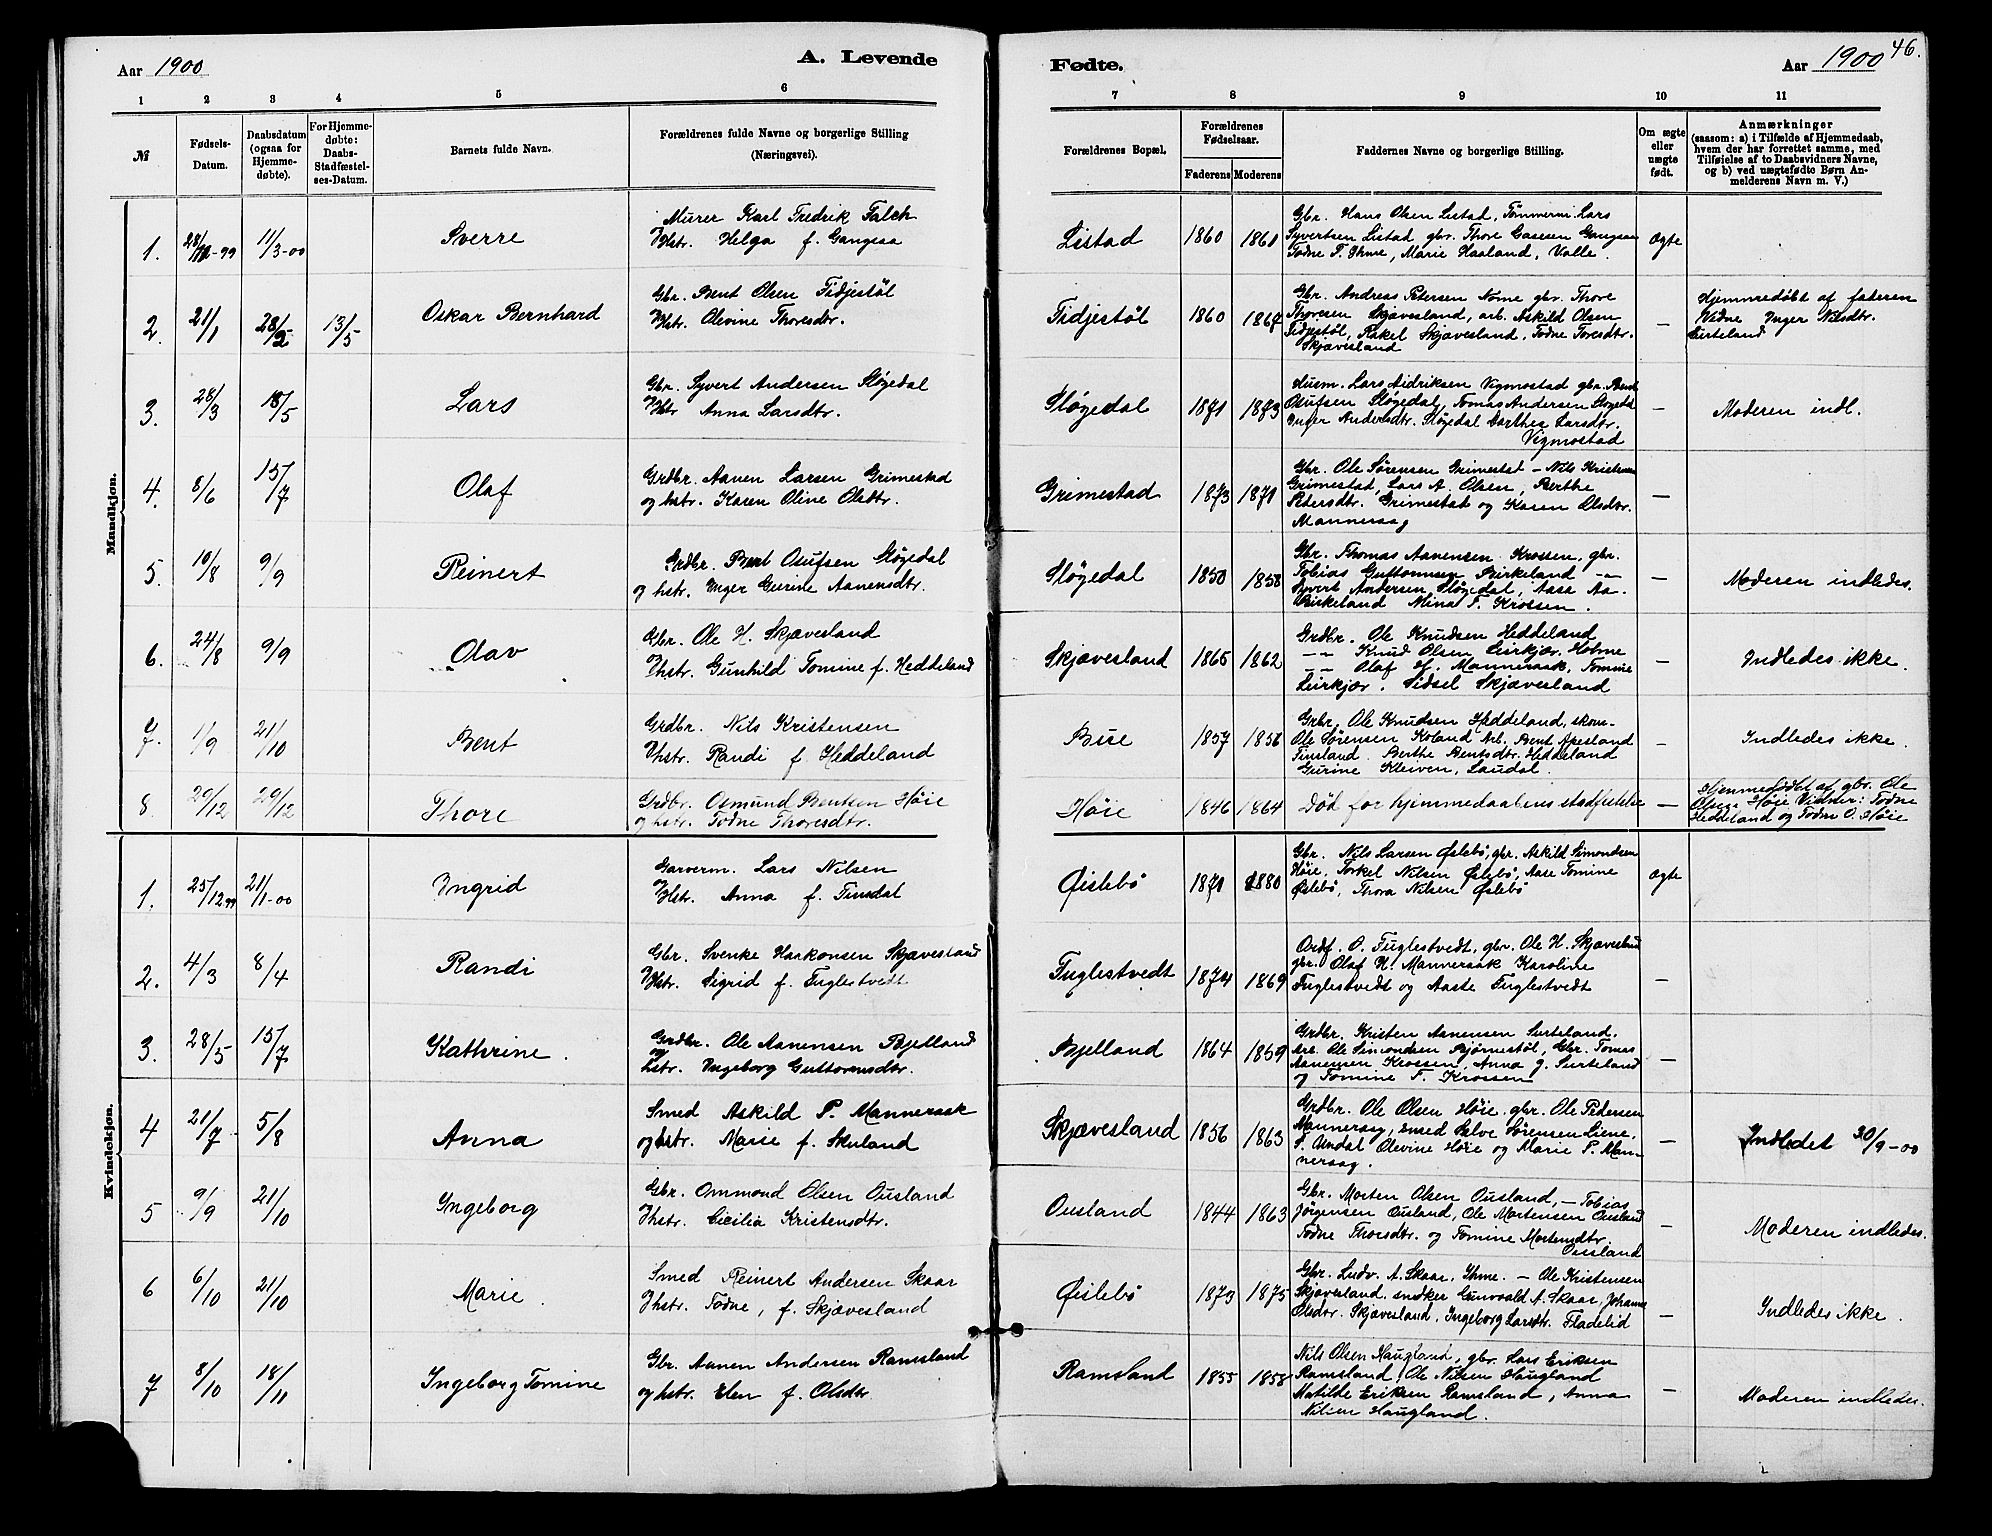 Aar 1900
A. Levende
1 2 3 4 5 6
№
Fødsels-
Datum.
Daabsdatum
(ogsaa for
Hjemme-
døbte).
For Hjemme-
døbte:
Daabs-
Stadfæstel-
ses-Datum.
Barnets fulde Navn.
Forældrenes fulde Navne og borgerlige Stilling
(Næringsvei).
Mandkjøn.
1. 11/3-00 Sverre
Murer Karl Fredrik Falch
Hstr. Helga f. Gangsaa
2. 21/1 28/2 13/5 Oskar Bernhard
Gbr. Bent Olsen Tidjestøl
Hstr. Olevine Thoresdtr.
3. 28/3 18/5 Lars
Gbr. Syvert Andersen Sløgedal
Hstr Anna Larsdtr.
4. 8/6 15/7 Olaf
Grdbr. Aanen Larsen Grimestad
og hstr. Karen Oline Olsdtr.
5. 10/8 9/9 Reinert
Grdbr. Bent Osufsen Sløgedal
og hstr. Inger Gurine Aanensdtr.
6. 24/8 9/9 Olav
Gbr. Ole H. Skjævesland
Hstr. Gunhild Tomine f. Heddeland
7. 1/9 21/10 Bent
Grdbr. Nils Kristensen
Hstr. Randi f Heddeland
8. 29/12 29/12 Thore
Grdbr. Osmund Bentsen Høie
og hstr. Todne Thoresdtr.
Kvindekjøn.
1. 25/12 99 21/1-00 Ingrid
Garverm. Lars Nilsen
Hstr. Anna f. Tinsdal
2. 4/3 8/4 Randi
Gbr. Svenke Haakonsen Skjævesland
Hstr. Sigrid f. Fuglestvedt
3. 28/5 15/7 Kathrine.
Grdbr. Ole Aanensen Bjelland
og
hstr. Ingeborg Guttormsdtr.
4 21/7 5/8 Anna
Smed Askild P. Mannersak
og hstr. Marie f. Skuland
5 9/9 21/10 Ingeborg
Gbr. Ommund Olsen Ousland
Hstr. Cecilia Kristensdtr.
6 6/10 21/10 Marie.
Smed Reinert Andersen Skaar
Hstr. Todne, f. Skjævesland
7 8/10 18/11 Ingeborg Tomine
Gbr. Aanen Andersen Ramsland
og hstr. Elen f. Olsdtr
Fødte.
Aar 1900 46.
7 8 9 10 11
Forældrenes Bopæl.
Forældrenes
Fødselsaar.
Faderens Moderens
Faddernes Navne og borgerlige Stilling.
Om ægte
eller
uægte
født.
Anmærkninger
(saasom: a) i Tilfælde af Hjemmedaab,
hvem der har forrettet samme, med
Tilføielse af to Daabsvidners Navne,
og b) ved uægtefødte Børn An-
melderens Navn m. V.)
Listad 1860 1861
Gbr. Hans Olsen Listad, Tømmerm. Lars
Syvertsen Listad gbr. Thore Gangsaa
Todne T. Ihme, Marie Haaland, Valle.
Ægte
Tidjestøl 1860 1867
Gbr. Andreas Petersen Nome gbr. Thore
Thoresen Skjævesland, arb. Askild Olsen
Tidjestøl, Rakel Skjævesland, Todne Toresdtr.
Skjævesland
—
Hjemmedøbt af faderen
Vidne Inger Nilsdtr.
Surteland
Sløgedal 1871 1873
Husm. Lars Didriksen Vigmostad gbr. Bent
Osufsen Sløgedal, Tomas Andersen Sløgedal
Inger Andersdtr. Sløgedal Larsdtr.
Vigmostad
—
Moderen indl.
Grimestad 1873 1871
Gbr. Ole Sørensen Grimestad — Nils Kristensen
Grimestad, Lars A. Olsen, Berthe
Petersdtr. Grimestad og Karen Olsdtr.
Mannersag
—
Sløgedal 1850 1858
Gbr. Thomas Aanensen Krossen, gbr.
Tobias Guttormsen Birkeland —"—
Syvert Andersen Sløgedal, Aasa Aa.
Birkeland Mina T. Krossen.
—
Moderen indledes.
Skjævesland 1865 1862
Grdbr. Ole Knudsen Heddeland
—"— Knud Olsen Leirkjær. Holme
—"— Olaf H. Mannersak, Tomine
Leirkjær. Sidsel Skjævesland
—
Indledes ikke.
Bue 1857 1856
Grbr. Ole Knudsen Heddeland, skom.
Ole Sørensen Koland Arb. Bent Apesland
Finsland. Berthe Bentsdtr. Heddeland
Gurine Kleiven, Laudal.
—
Indledes ikke.
Høie 1846 1864
Død før hjemmedaabens stadfestelse
—
Hjemmedøbt af gbr. Ole
Olsen Høie Vidner: Todne
Heddeland og Todne O. Høie
Øislebø 1871 1880
Gbr. Nils Larsen Øslebø, gbr. Askild Simondsen
Høie, Torkel Nilsen Øslebø, Aase Tomine
Øslebø, Thora Nilsen Øslebø
Ægte
Fuglestvedt 1874 1869
Ordf. O. Fuglestvedt, gbr. Ole H. Skjævesland
gbr. Olaf H. Mannersak Karoline
Fuglestvedt og Aaste Fuglestvedt
—
Bjelland 1864 1859
Grdbr. Kristen Aanensen Surteland.
Arb. Ole Simondsen Bjørnestøl, Gbr. Tomas
Aanensen Krossen, Anna G. Surteland
og Tomine T. Krossen
—
Skjævesland 1856 1863
Grdbr. Ole Olsen Høie. gbr. Ole Pedersen
Mannersag, smed Salve Sørensen Liene,
S. Undal Olevine Høie og Marie P. Man-
nersag.
—
Indledet 30/9-00
Ousland 1844 1863
Gbr. Morten Olsen Ousland, — Tobias
Jørgensen Ousland, Ole Mortensen Ousland
Todne Thorsdtr. og Tomine Mortensdtr.
Ousland
—
Moderen indledes.
Øislebø 1873 1875
Gbr. Ludv. A. Skaar, Ihme. — Ole Kristensen
Skjævesland, snedker Gunvald A. Skaar, Johanne
Olsdtr. Skjævesland, Ingeborg Larsdtr. Fladelid
—
Indledes ikke.
Ramsland 1855 1858
Nils Olsen Haugland, gbr. Lars Eriksen
Ramsland, Ole Nilsen Haugland
Matilde Eriksen Ramsland, Anna
Nilsen Haugland.
—
Moderen indledes.